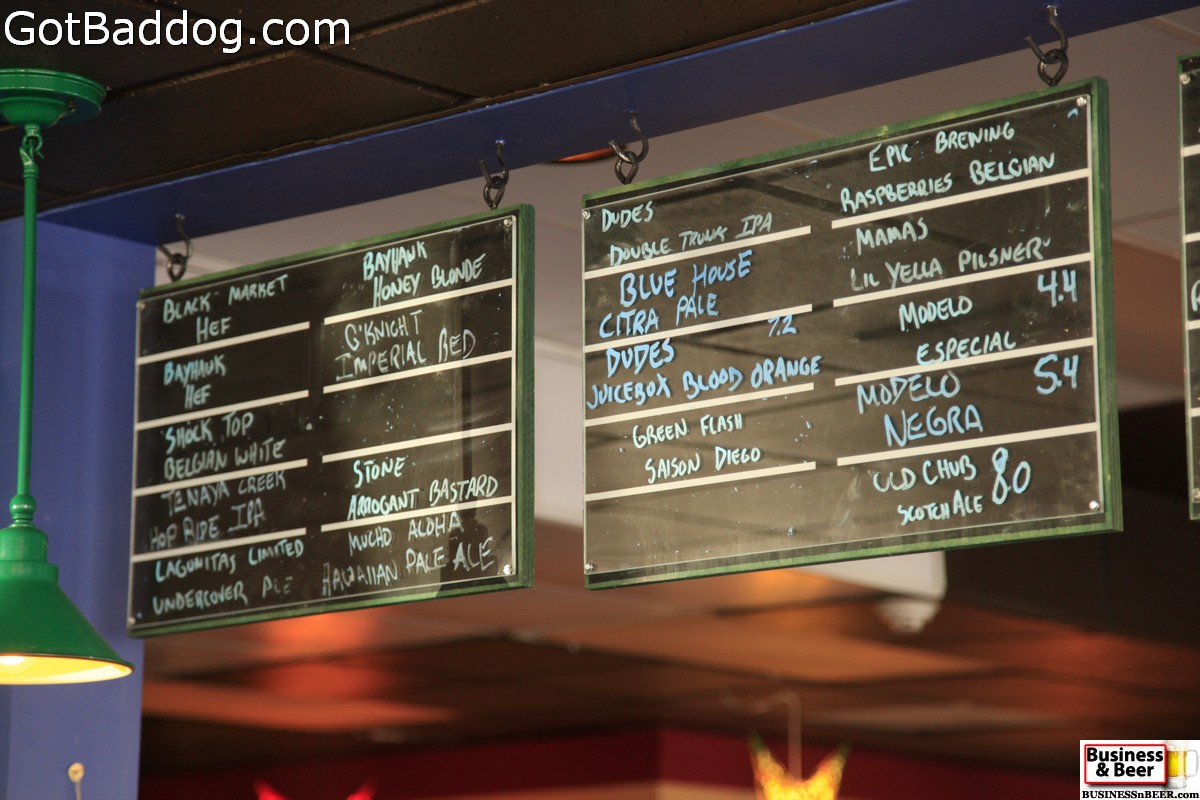 GotBaddog.com
BLACK MARKET
HEF
BAYHAWK
HEF
SHOCK TOP
BELGIAN WHITE
TENAYA CREEK
HOP RIDE IPA
LAGUNITAS LIMITED
UNDERCOVER
BAYHAWK
HONEY BLONDE
G'KNIGHT
IMPERIAL RED
STONE
ARROGANT BASTARD
MUCHO ALOHA
HAWAIIAN PALE ALE
DUDES
DOUBLE TRUNK IPA
BLUE HOUSE
CITRA PALE
7.2
DUDES
JUICEBOX BLOOD ORANGE
GREEN FLASH
SAISON DIEGO
EPIC BREWING
RASPBERRIES BELGIAN
MAMAS
LIL YELLA PILSNER
MODELO 4.4
ESPECIAL
MODELO 5.4
NEGRA
OLD CHUB 8.0
SCOTCH ALE
Business
& Beer
BUSINESSnBEER.com